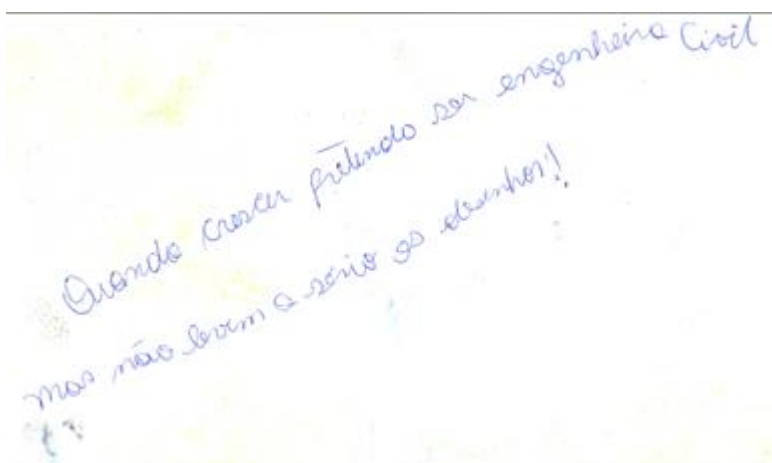 Quando crescer pretendo ser engenheira Civil
mas não levem a sério os desenhos!